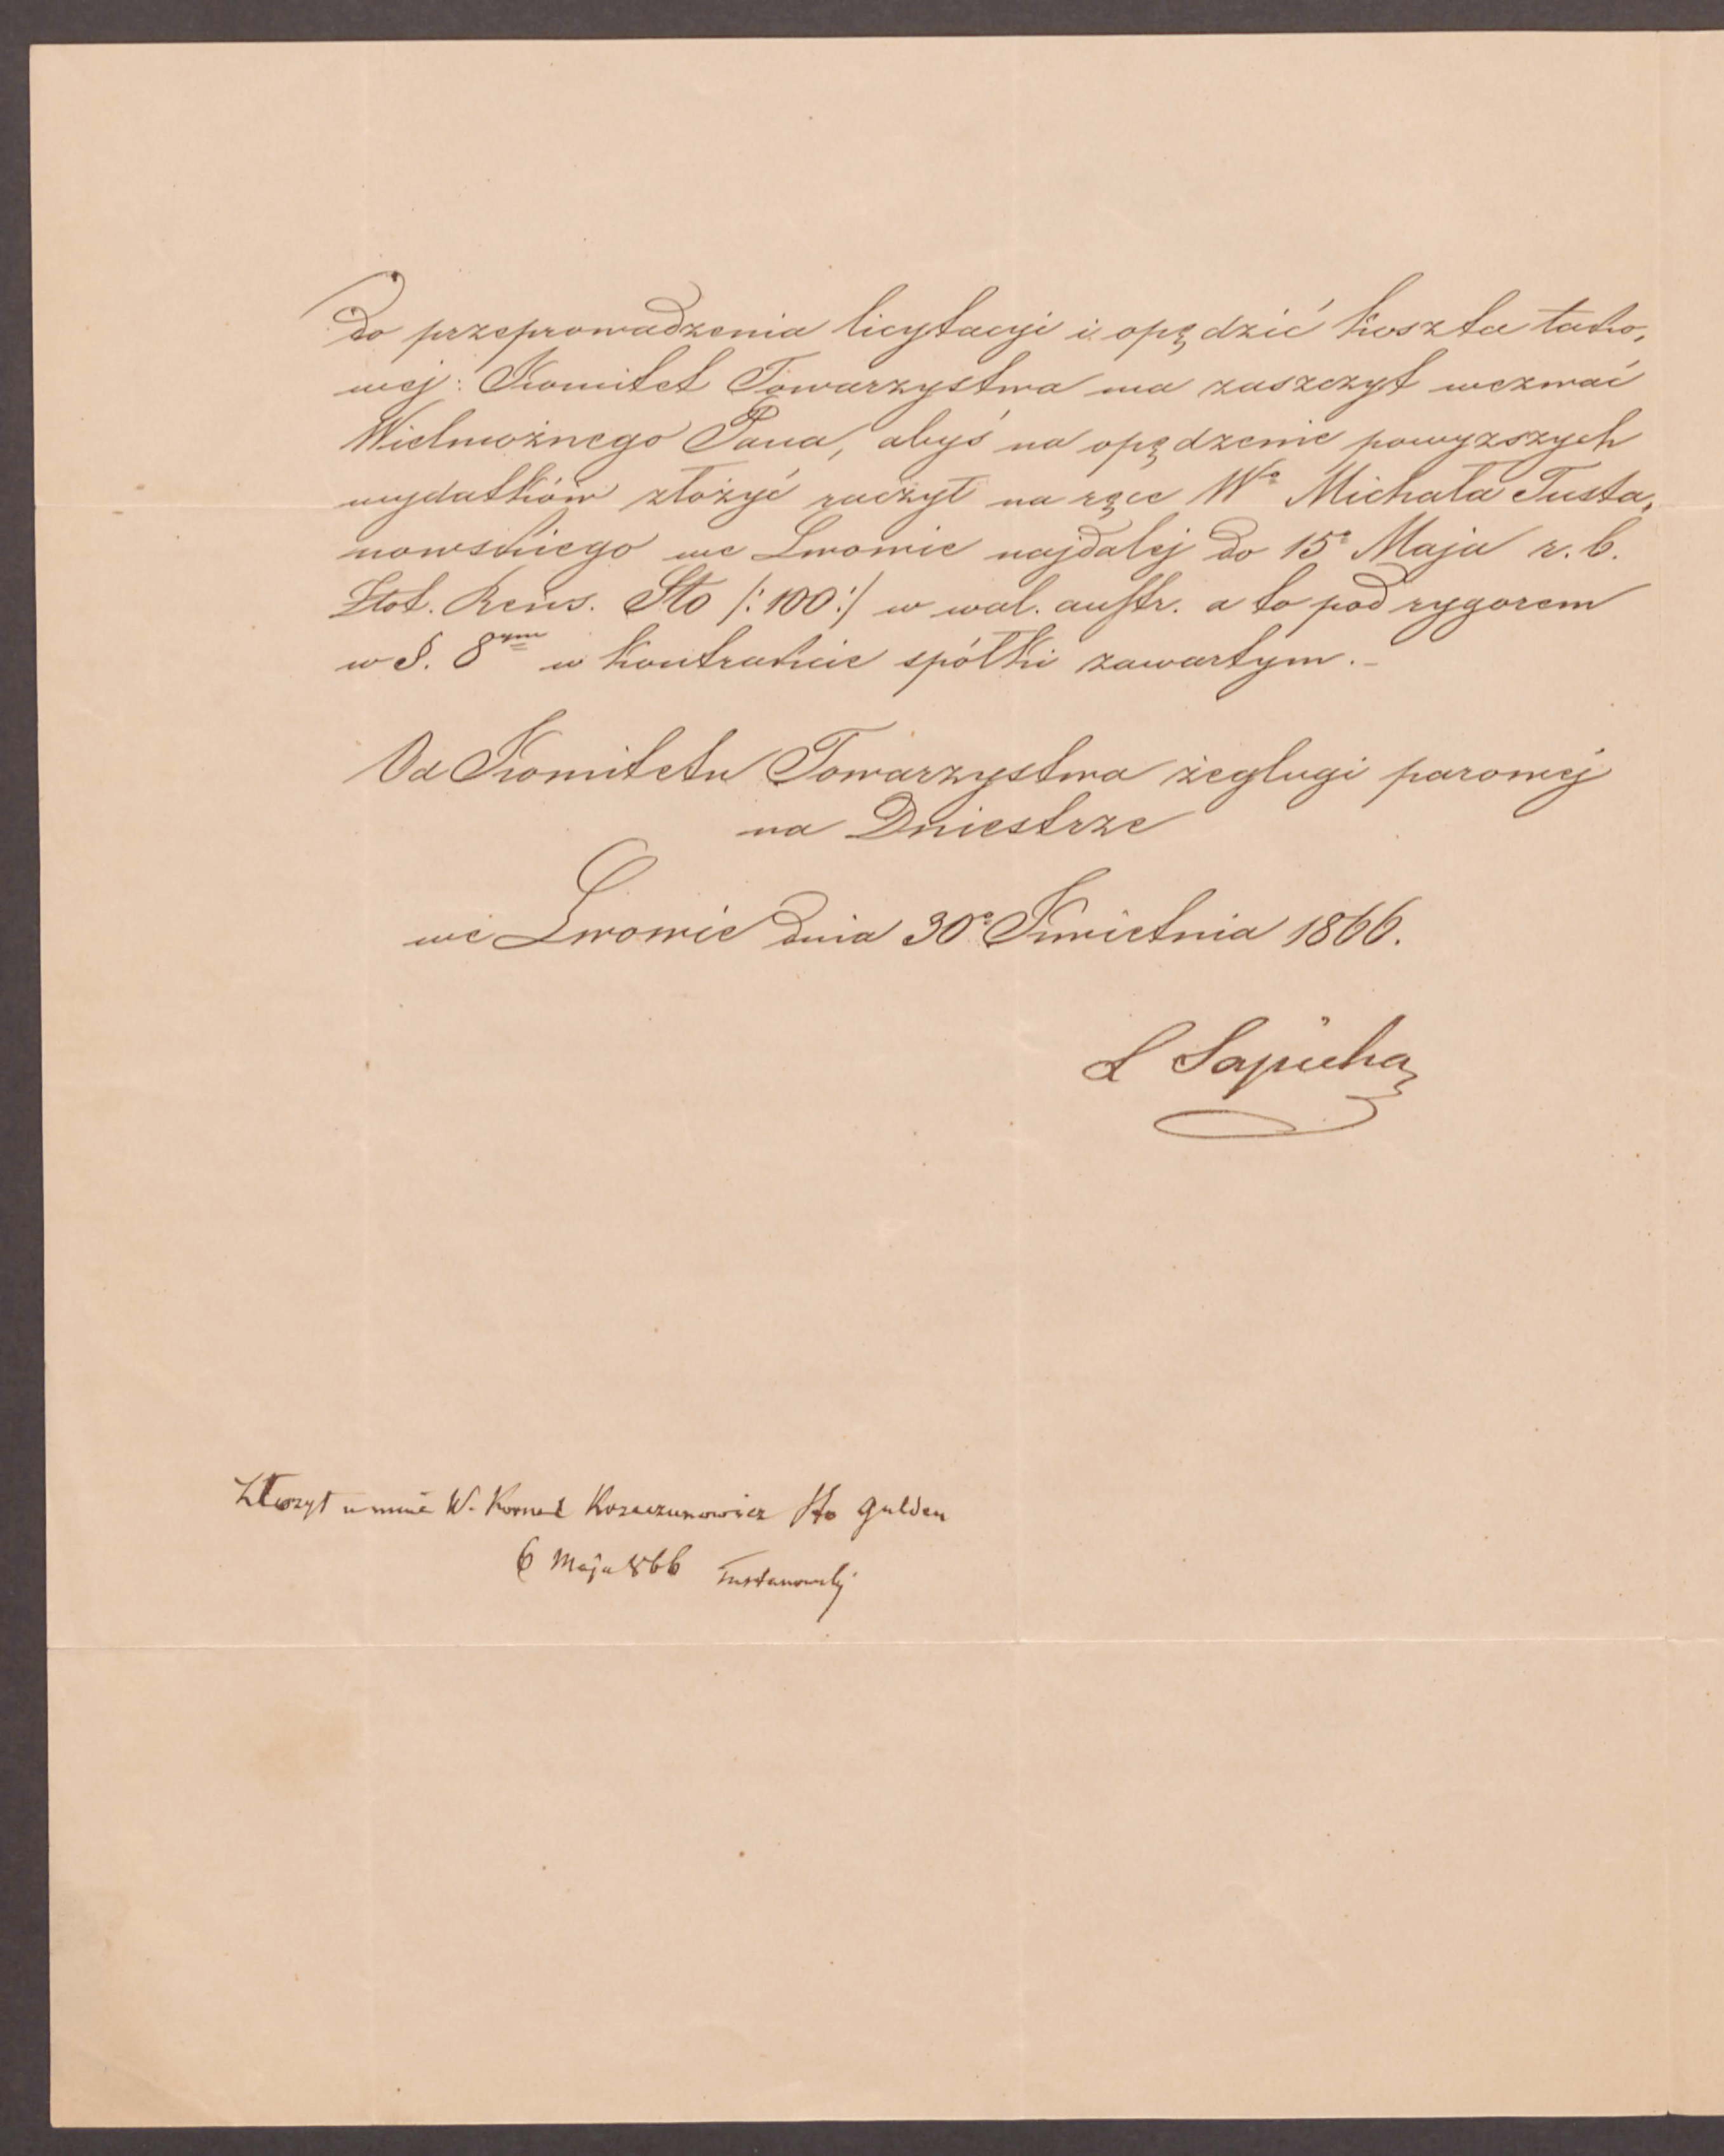 do przeprowadzenia licytacyi i opędzić koszta tako,
wej: Komitet Towarzystwa ma zaszczyt wezwać
Wielmożnego Pana, abyś na opędzenie powyzszych
wydatków złożyć raczył na ręce Wo Michała Tusta,
nowskiego we Lwowie najdalej do 15o Maja r. b.
Złot. Reńs. Sto /: 100 :/ w wal. austr. a to pod rygorem
w §. 8ym w kontrakcie spółki zawartym.-
Od Komitetu Towarzystwa żeglugi parowej
na Dniestrze
we Lwowie dnia 30o Kwietnia 1866.
L Sapieha
Złożył u mnie W. Kornel Krzeczunowicz sto gulden
6 Maja 866 Tustanowski